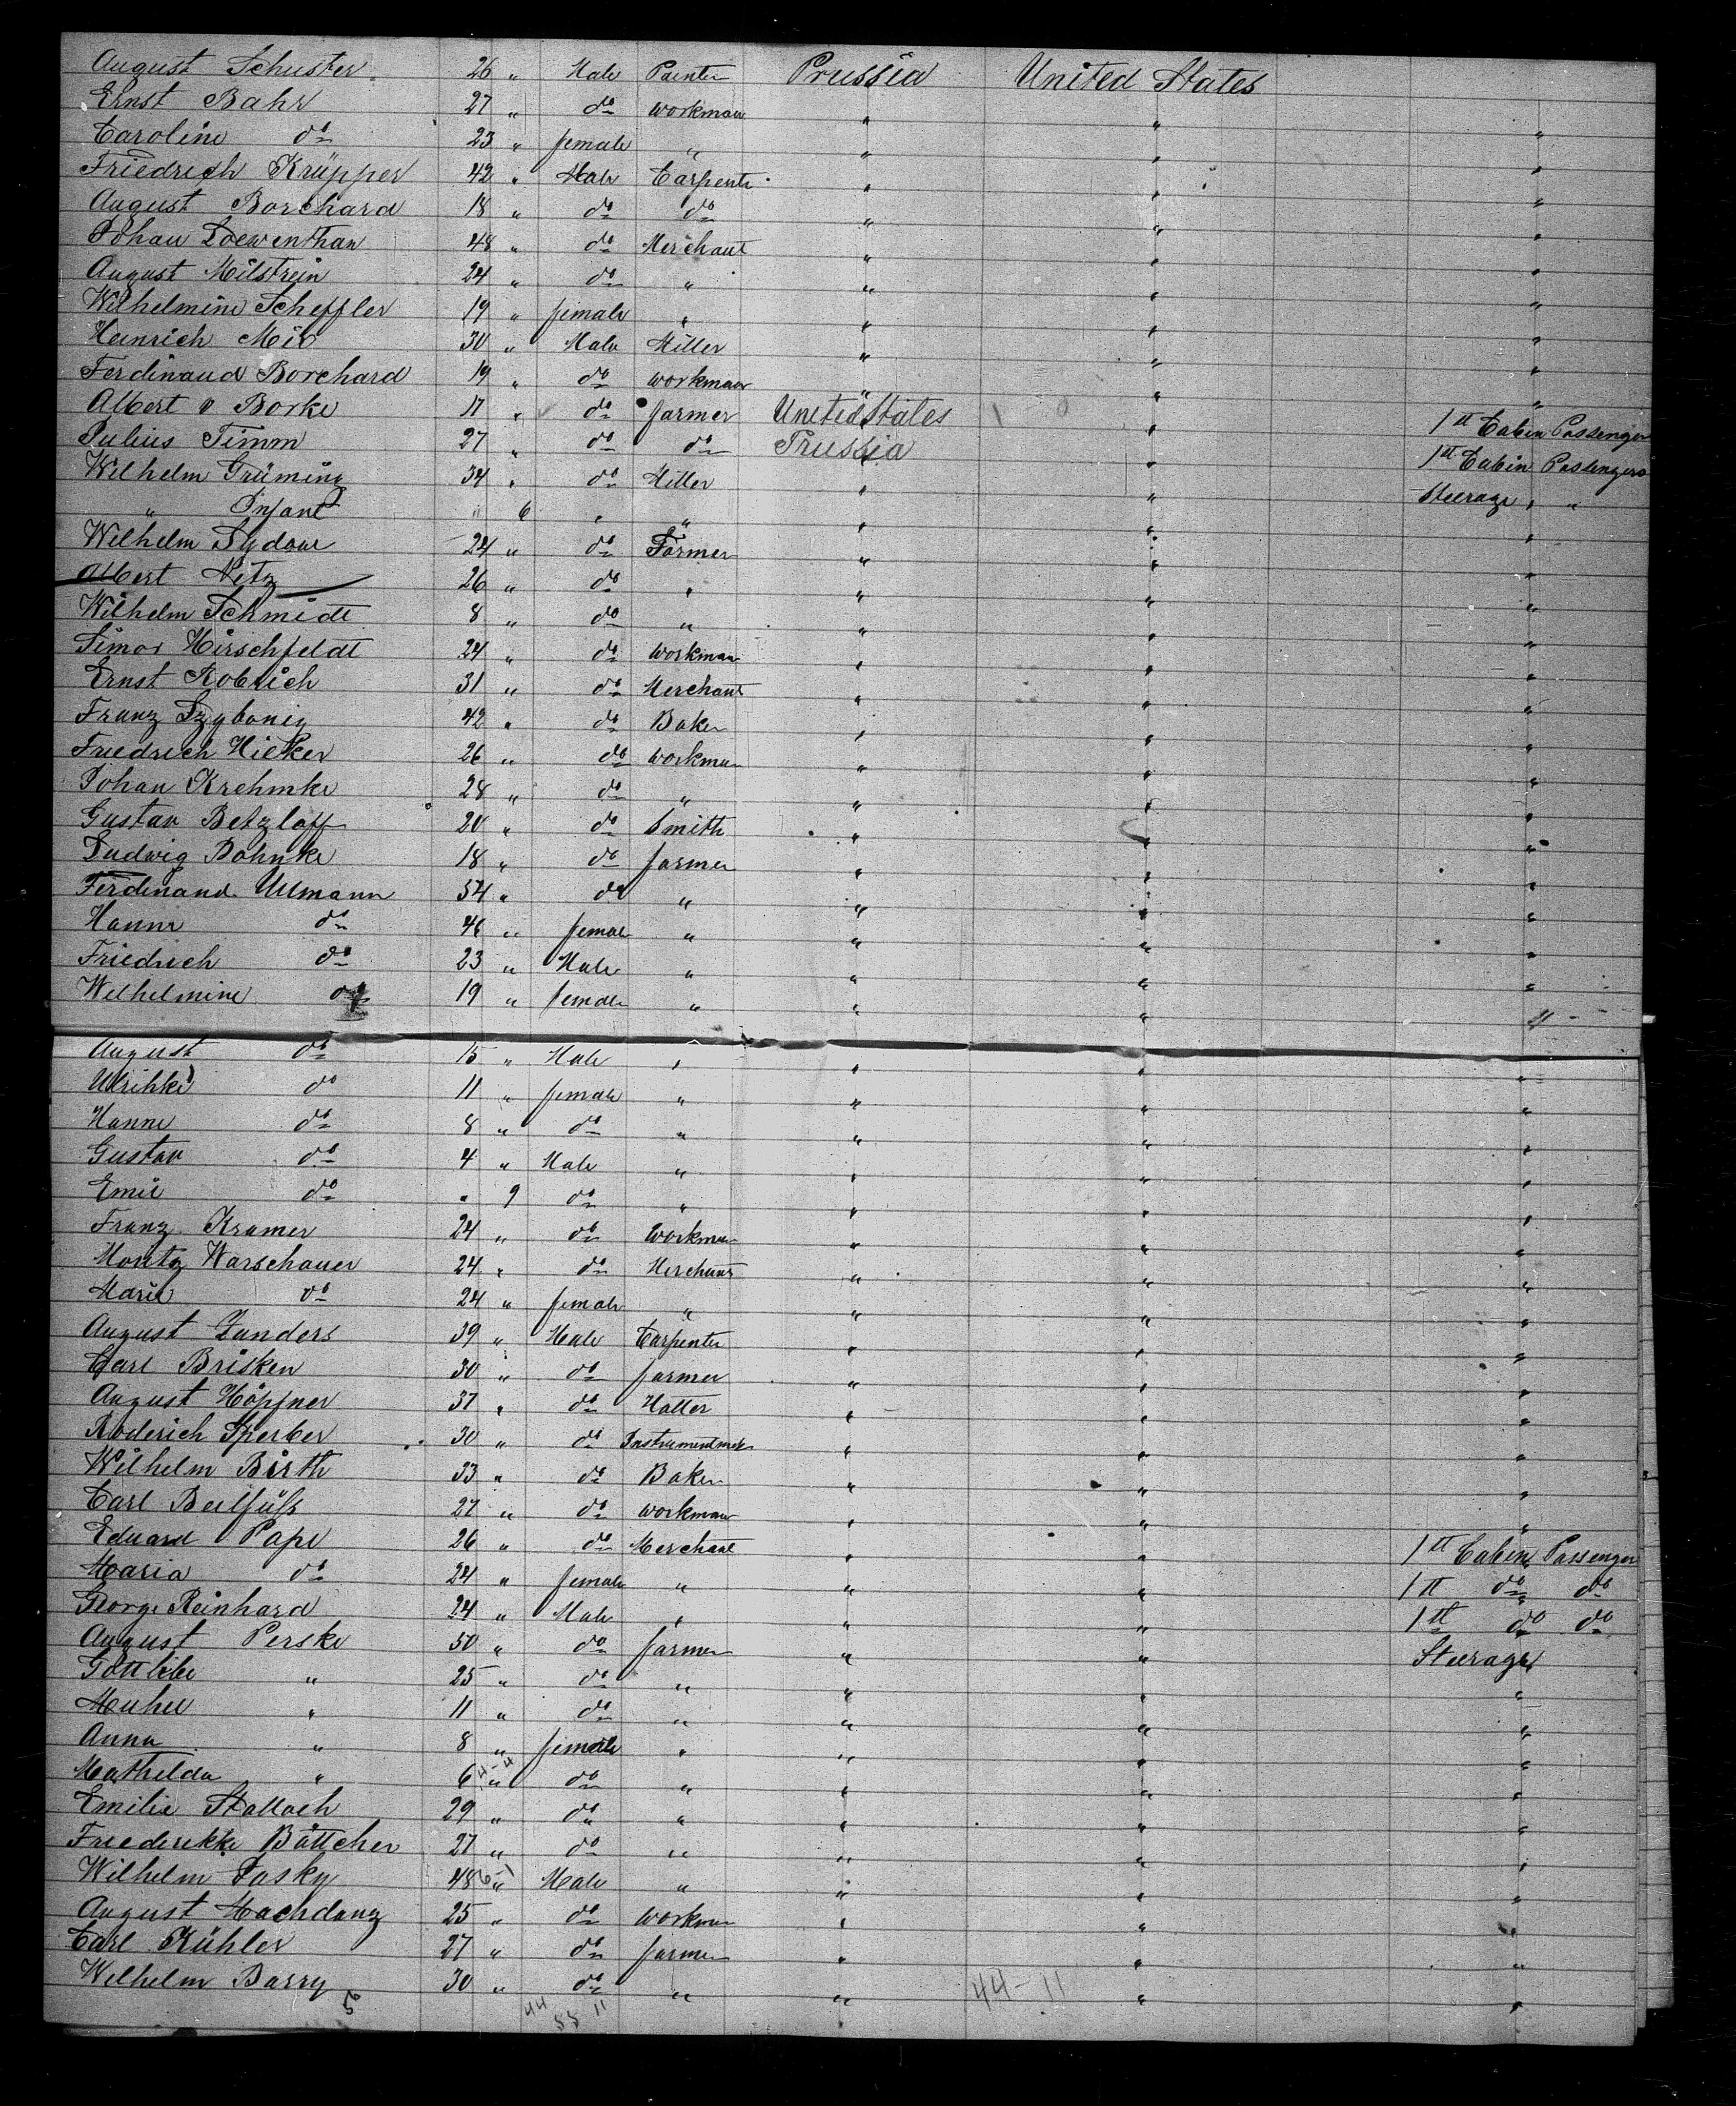 August Schuster 26 " Male Painter Prussia United States
Ernst Bahr 27 " do workman " " "
Caroline do 23 " female " " " "
Friedrich Krüpper 42 " Male Carpente " " "
August Borchard 18 " do do " " "
Johan Loewenthan 48 " do Merchant " " "
August Milstrein 24 " do " " " "
Wilhelmine Scheffler 19 " female " " " "
Heinrich 30 " Male Miller " " "
Ferdinand Borchard 19 " do workman " " "
Albert v Borke 17 " do farmer United States " 1st Cabin Passenger
Julius Timm 27 " do do Prussia " 1st Cabin Passengers
Wilhelm Grüming 34 " do Miller " " Steerage "
" Infant " 6 " " " " "
Wilhelm Sydow 24 " do Farmer " " "
Albert Netz 26 " do " " " "
Wilhelm Schmidt 8 " do " " " "
Simor Hirschfeldt 24 " do workman " " "
Ernst Robrich 31 " do Merchant " " "
Franz 42 " do Baker " " "
Friedrich Hieker 26 " do workman " " "
Johan Krehmke 28 " do " " " "
Gustav Betzlaff 20 " do Smith " " "
Ludwig Bohnke 18 " do farmer " " "
Ferdinand Ullmann 54 " do " " " "
Hanne do 46 " female " " " "
Friedrich do 23 " Male " " " "
Wilhelmine do 19 " female " " " "
August do 15 " Male " " " "
Ulrihke do 11 " female " " " "
Hanne do 8 " do " " " "
Gustav do 4 " Male " " " "
Emil do " 9 do " " " "
Franz Kramer 24 " do workman " " "
Moritz Warschauer 24 " do Merchant " " "
Marie do 24 " female " " " "
August Zanders 39 " Male Carpenter " " "
Carl Brisken 30 " do farmer " " "
August Höpfner 37 " do Hatter " " "
Roderich Sperber 30 " do Instrumentmak " " "
Wilhelm Birth 33 " do Baker " " "
Carl Beilfüss 27 " do workman " " "
Eduard Pape 26 " do Merchant " " 1st Cabin Passenger
Maria do 24 " female " " " 1st do do
George Reinhard 24 " Male " " " 1st do do
August Perske 50 " do farmer " " Steerage
Gottlibe " 25 " do " " " "
" 11 " do " " " "
Anna " 8 " female " " " "
Mathilda " 6 4-4 " do " " " "
Emilie Stallach 29 " do " " " "
Friederikke Böttcher 27 " do " " " "
Wilhelm Pasky 48 6-1 " Male " " " "
August Machdanz 25 " do workman " " "
Carl Kühler 27 " do farmer " " "
Wilhelm Barry 30 " do " " 44-11 " "
44 11
55